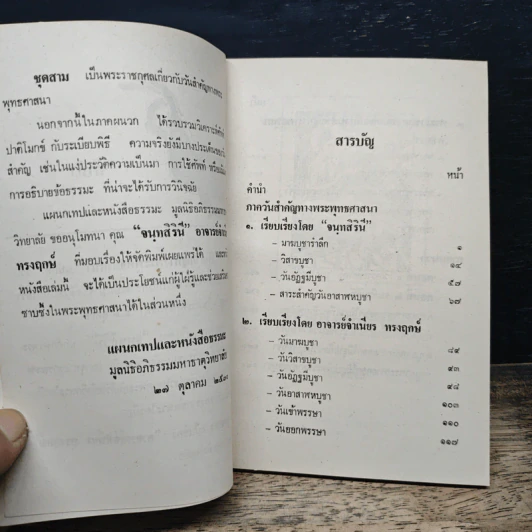 ชุดสาม เป็นพระราชกุศลเกี่ยวกับวันสำคัญทาง
พุทธศาสนา
นอกจากนี้ในภาคผนวก ได้รวบรวมวิเคราะห์
ปาติโมกข์ กับระเบียบพิธี ความจริงยังมีบางประเด็น
สำคัญ เช่นในแง่ประวัติความเป็นมา การใช้ศัพท์
การอธิบายข้อธรรมะ ที่น่าจะได้รับการวินิจฉัย
แผนกเทปและหนังสือธรรมะ มูลนิธิอภิธรรม
วิทยาลัย ขออนุโมทนา คุณ “จนฺทสิรินี” อาจารย์
ทรงฤกษ์ ที่มอบเรื่องให้จัดพิมพ์เผยแพร่ได้ และ
หนังสือเล่มนี้ จะได้เป็นประโยชน์แก่ผู้ไม่รู้และช่วย
ซาบซึ้งในพระพุทธศาสนาได้ในส่วนหนึ่ง
แผนกเทปและหนังสือธรรมะ
มูลนิธิอภิธรรมมหาธาตุวิทยาลัย
๒๗ ตุลาคม
สารบัญ
หน้า
คำนำ
ภาควันสำคัญทางพระพุทธศาสนา
๑. เรียบเรียงโดย “จนฺทสิรินี”
- มาฆบูชารำลึก ๑
- วิสาขบูชา ๑๔
- วันอัฏฐมีบูชา ๕๗
- สาระสำคัญวันอาสาฬหบูชา ๖๗
๒. เรียบเรียงโดย อาจารย์จำเนียร ทรงฤกษ์
- วันมาฆบูชา ๘๙
- วันวิสาขบูชา ๙๓
- วันอัฏฐมีบูชา ๙๘
- วันอาสาฬหบูชา ๑๐๓
- วันเข้าพรรษา ๑๑๐
- วันออกพรรษา ๑๑๗